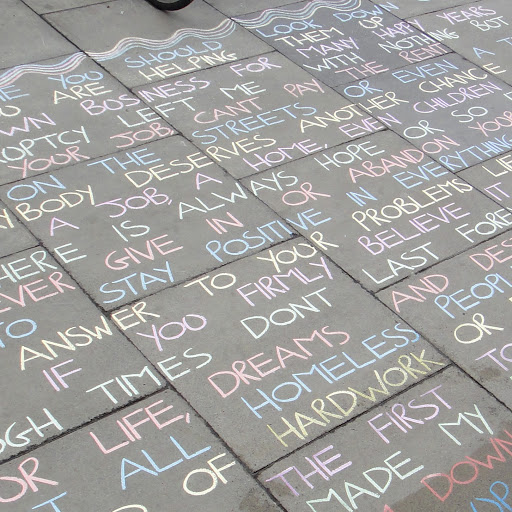 E YOU SHOULD LOOK DOWN
YOU ARE HELPING THEM UP
WN BUSINESS FOR MANY HAPPY YEARS
KRUPTCY LEFT ME WITH NOTHING BUT
YOUR JOB, CANT PAY THE RENT
ON THE STREETS OR EVEN A T
YBODY DESERVES ANOTHER CHANCE
A JOB, A HOME, EVEN CHILDREN
HERE IS ALWAYS HOPE OR SO
EVER GIVE IN OR ABANDON YOUR
STAY POSITIVE IN EVERYTHING
TO ANSWER TO YOUR PROBLEMS
IF YOU FIRMLY BELIEVE IT
GH TIMES DONT LAST FORE
OR LIFE, DREAMS AND DES
T ALL HOMELESS PEOPL
OF HARDWORK OR
THE FIRST TO
MADE MY
DOWN
UP